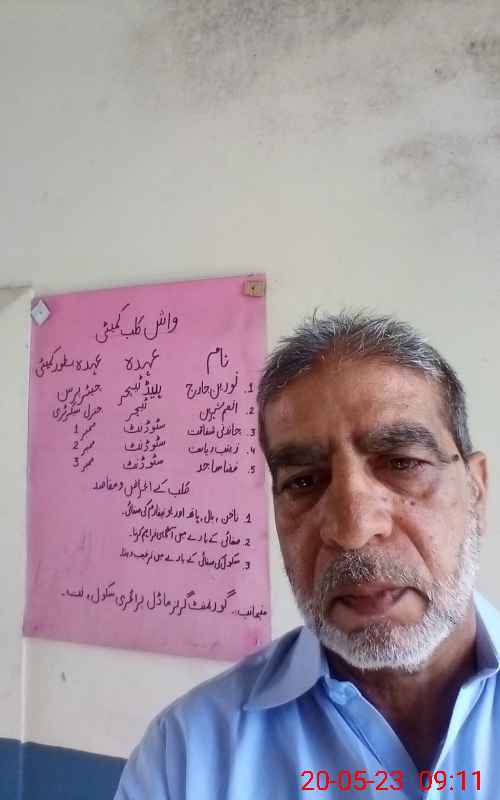 واش کلب کمیٹی
نام عہدہ عہدہ بطور کمیٹی
1. نورین جارج ہیڈ ٹیچر چیئر پرسن
2. انعم ٹیچر جنرل سیکرٹری
3. سٹوڈنٹ ممبر 1
4. زینب ریاست سٹوڈنٹ ممبر 2
5. فضا ساجد سٹوڈنٹ ممبر 3
کلب کے اغراض و مقاصد
1. ناخن، بال، ہاتھ اور یونیفارم کی صفائی۔
2. صفائی کے بارے میں آگاہی فراہم کرنا۔
3. سکول کی صفائی کے بارے میں ترغیب دینا۔
منجانب:۔ گورنمنٹ گرلز ماڈل پرائمری سکول،
20-05-23 09:11